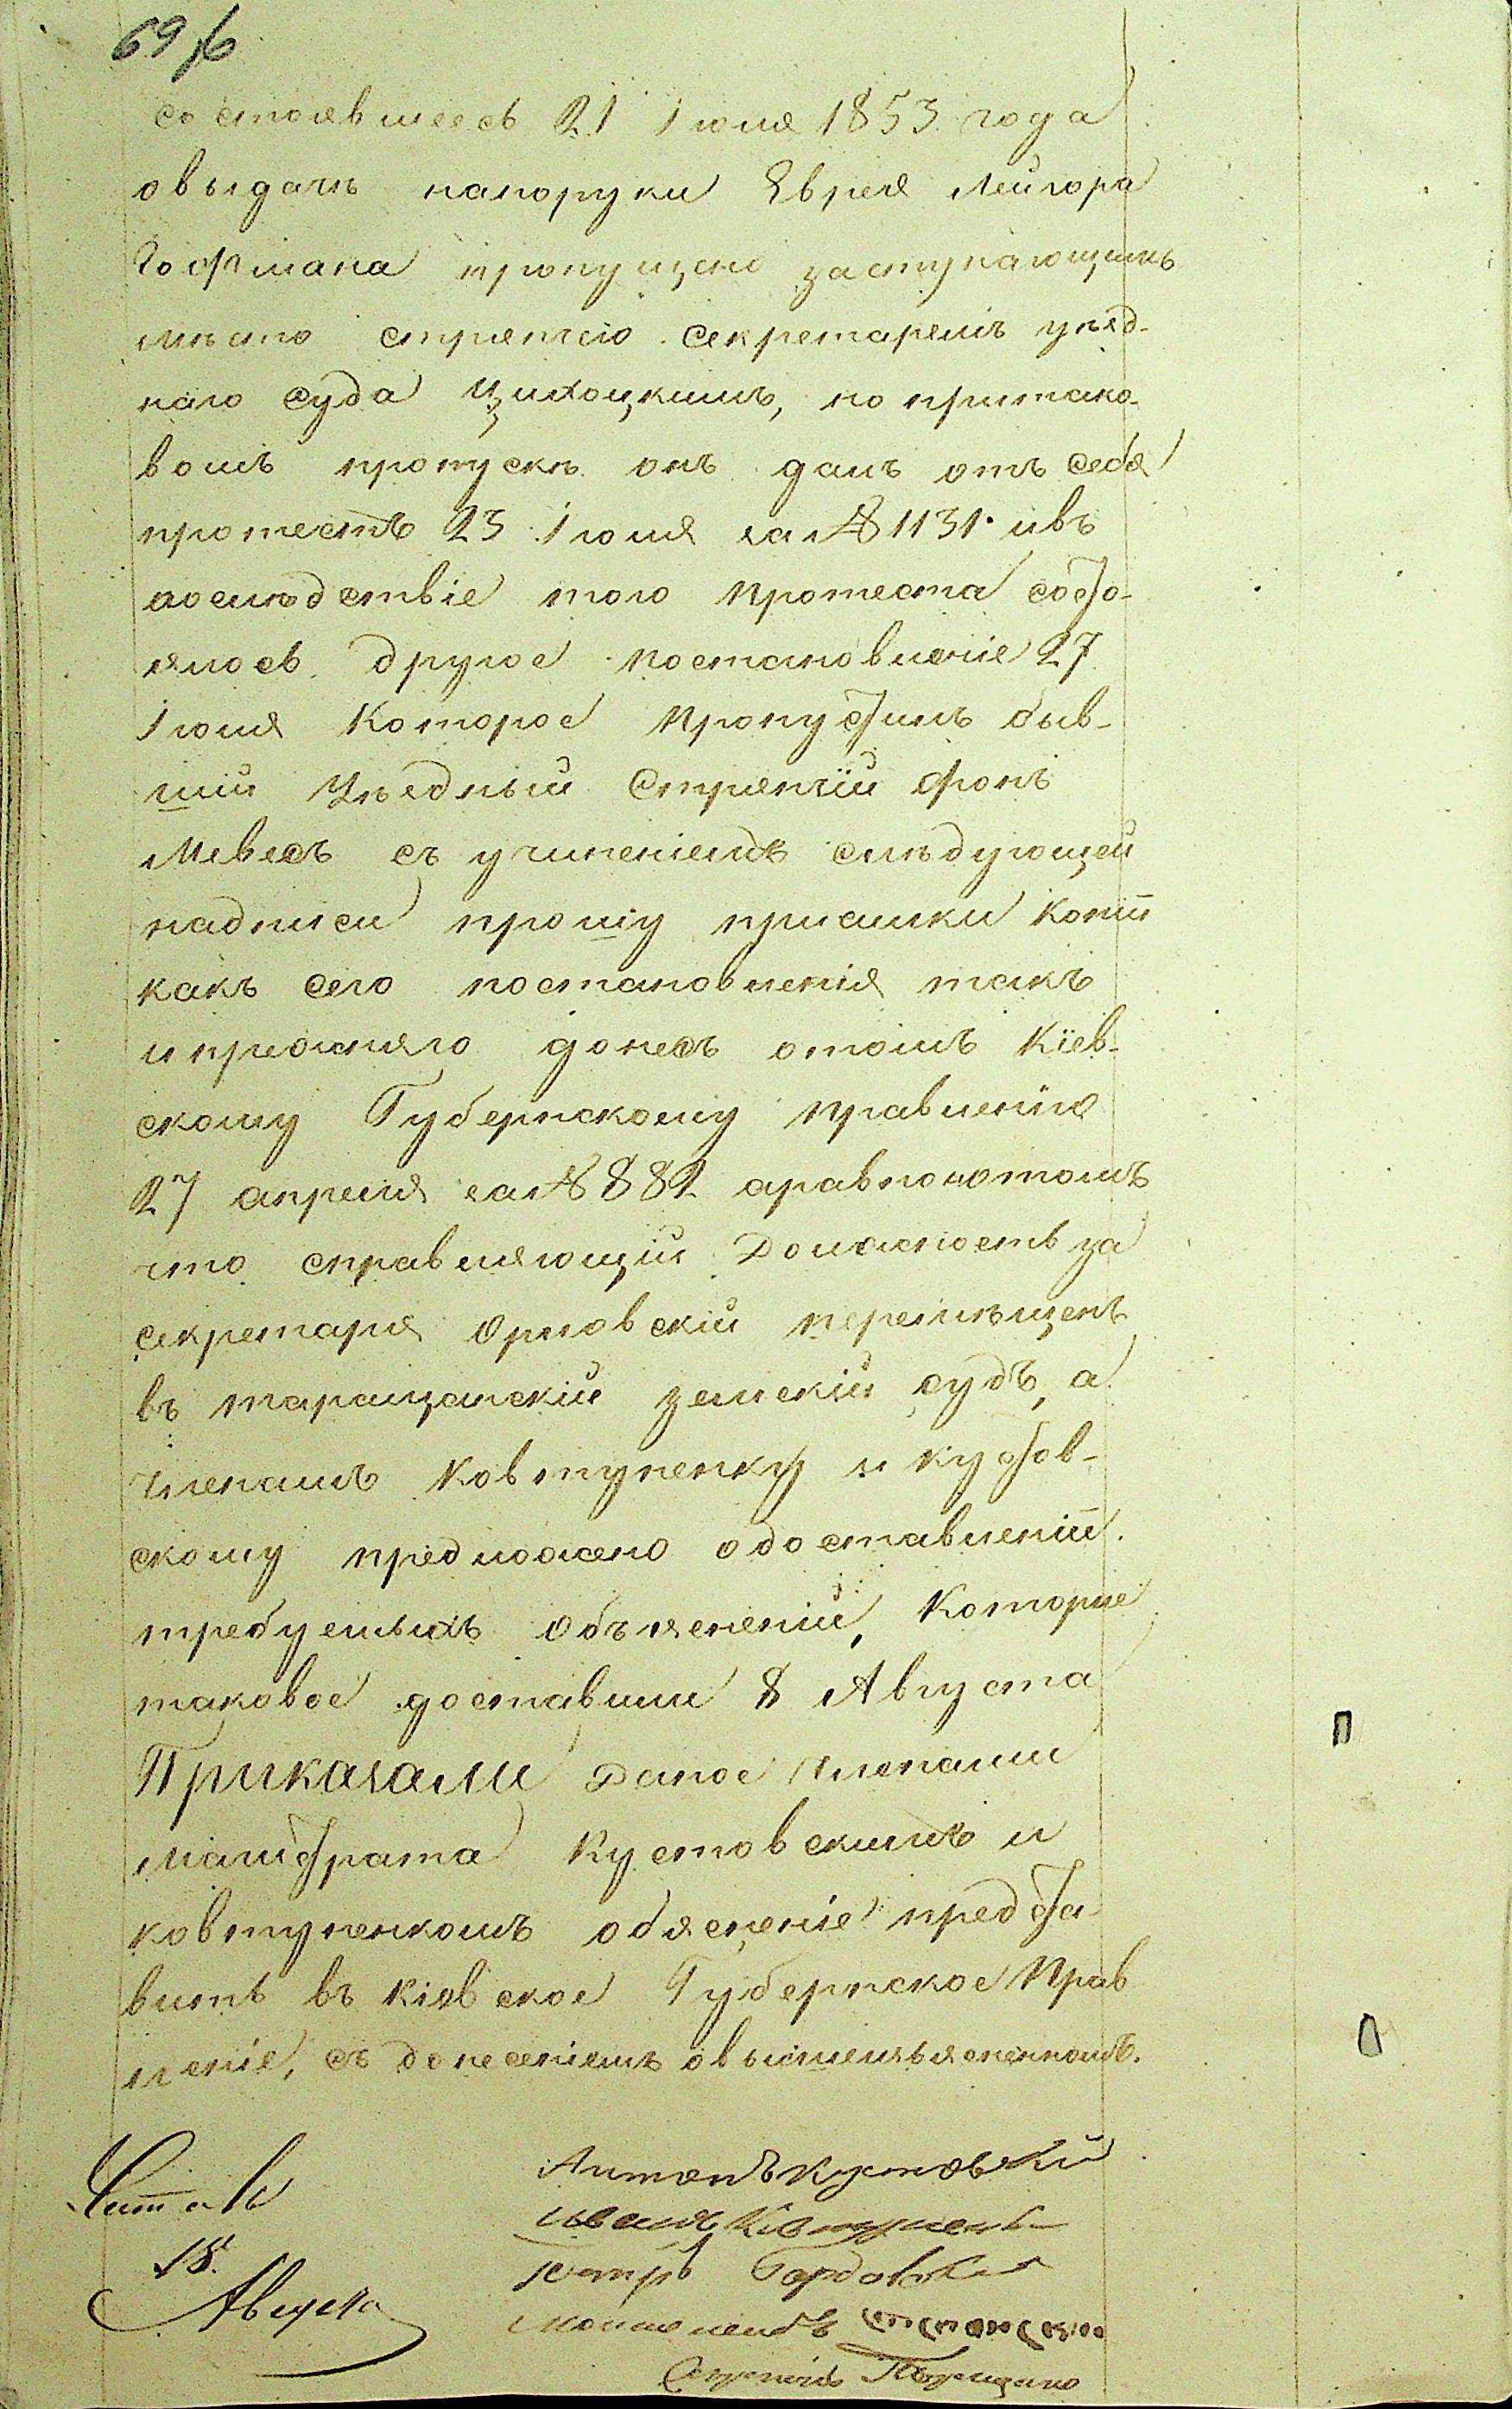 состоявшеесь 21 Іюня 1853 года
овыдачи напоруки Еврея Лейзора
Гофмана пропущено заступающимъ
мѣсто стряпчего секретаремъ уѣзд-
наго суда Цихоцкимъ, но притако-
вомъ пропускѣ онъ далъ отъ себя
протестъ 23 Іюня за № 1131 ивъ
послѣдствіе того протеста состо-
ялось другое постановленіе 27
Іюня Которое пропустилъ быв-
шій Уѣздный Стряпчій Фонъ
Мевесъ съ учиненіемъ слѣдующей
надписи прошу присылки Копіи
какъ сего постановленія такъ
ипрежняго донесъ отомъ Кіев-
скому Губернскому правленію
27 апреля за № 882 аравноютомъ
что справляющій Должность за
секретаря Орловскій перемѣщенъ
въ таращанскій земскій судъ, а
членамъ Ковтуненку и кустов-
скому предложено одоставленіи
требуемыхъ объясненій, Которие
таковое доставили 8 Августа
Приказали Даное Членами
Магистрата Кустовскимъ и
ковтуненкомъ обясненіе предста
вить въ кіевское Губернское Прав
леніе, съ донесеніемъ овышеизьясненномъ.
Читалъ
18.
Августа
Антонъ Кустовский
иванъ Ковтуненко
петръ